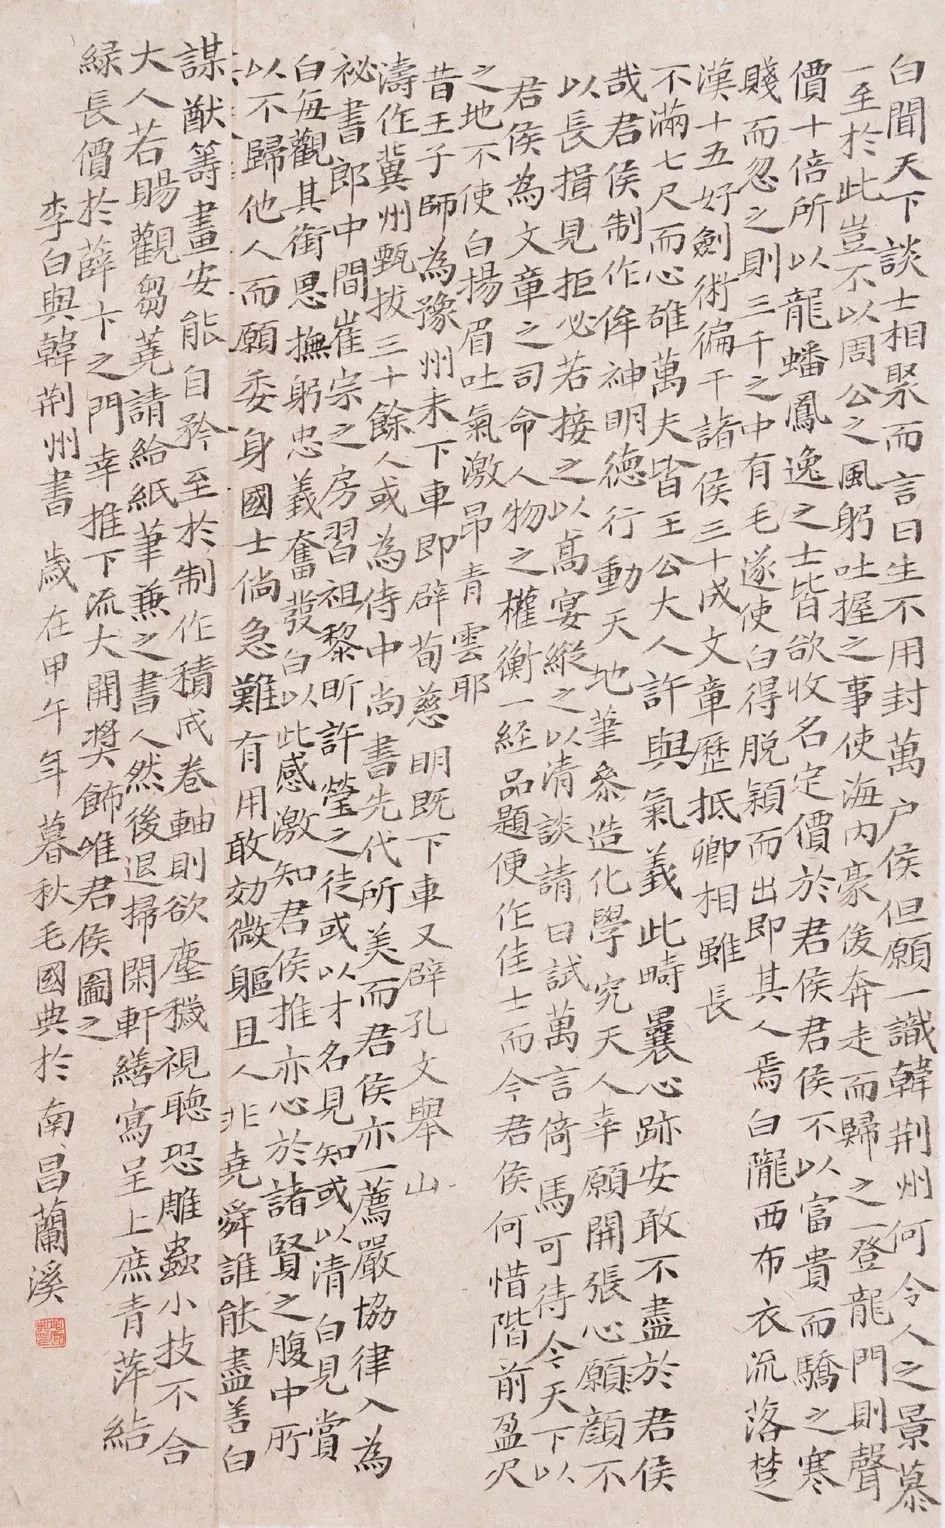 白聞天下談士相聚而言曰生不用封萬户侯但願一識韓荆州何令人之景慕
一至於此豈不以周公之風躬吐握之事使海内豪俊奔走而歸之一登龍門則聲
價十倍所以龍蟠鳳逸之士皆欲收名定價於君侯君侯不以富貴而驕之寒
賤而忽之則三千之中有毛遂使白得脱穎而出即其人焉白隴西布衣流落楚
漢十五好劍術徧干諸侯三十成文章歷抵卿相雖長
不滿七尺而心雄萬夫皆王公大人許與氣義此疇曩心跡安敢不盡於君侯
哉君侯制作侔神明德行動天地筆参造化學究天人幸願開張心願顔不
以長揖見拒必若接之以高宴縱之以清談請日試萬言倚馬可待今天下以
君侯為文章之司命人物之權衡一経品題便作佳士而今君侯何惜階前盈尺
之地不使白揚眉吐氣激昂青雲耶
昔王子師為豫州未下車即辟荀慈明既下車又辟孔文舉山
濤作冀州甄拔三十餘人或為侍中尚書先代所美而君侯亦一薦嚴協律入為
祕書郎中間崔宗之房習祖黎昕許瑩之徒或以才名見知或以清白見賞
白每觀其銜恩撫躬忠義奮發白以此感激知君侯推赤心於諸賢之腹中所
以不歸他人而願委身國士倘急難有用敢効微軀且人非堯舜誰能盡善白
謀猷籌畫安能自矜至於制作積成卷軸則欲塵穢視聴恐雕蟲小技不合
大人若賜觀芻蕘請給紙筆兼之書人然後退掃閑軒繕寫呈上庶青萍結
緑長價於薛卞之門幸推下流大開奬飾唯君侯圖之
李白與韓荆州書 歲在甲午年暮秋毛國典於南昌蘭溪